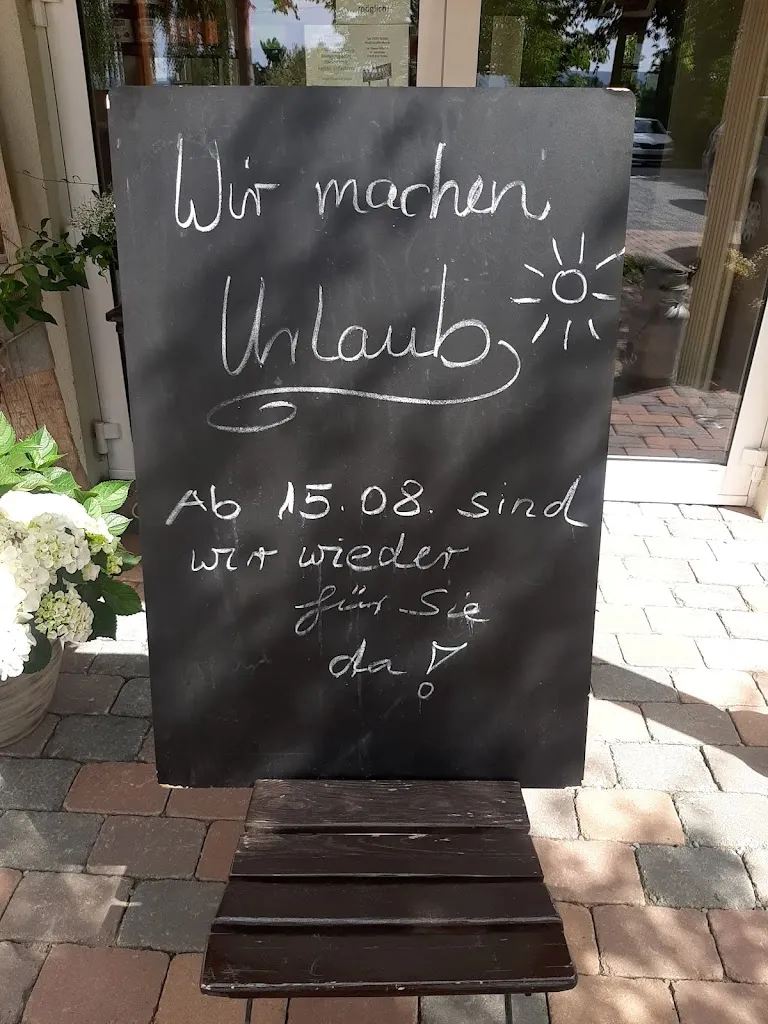 möglich!
Wir machen
Urlaub
Ab 15.08. sind
wir wieder
für Sie
da!